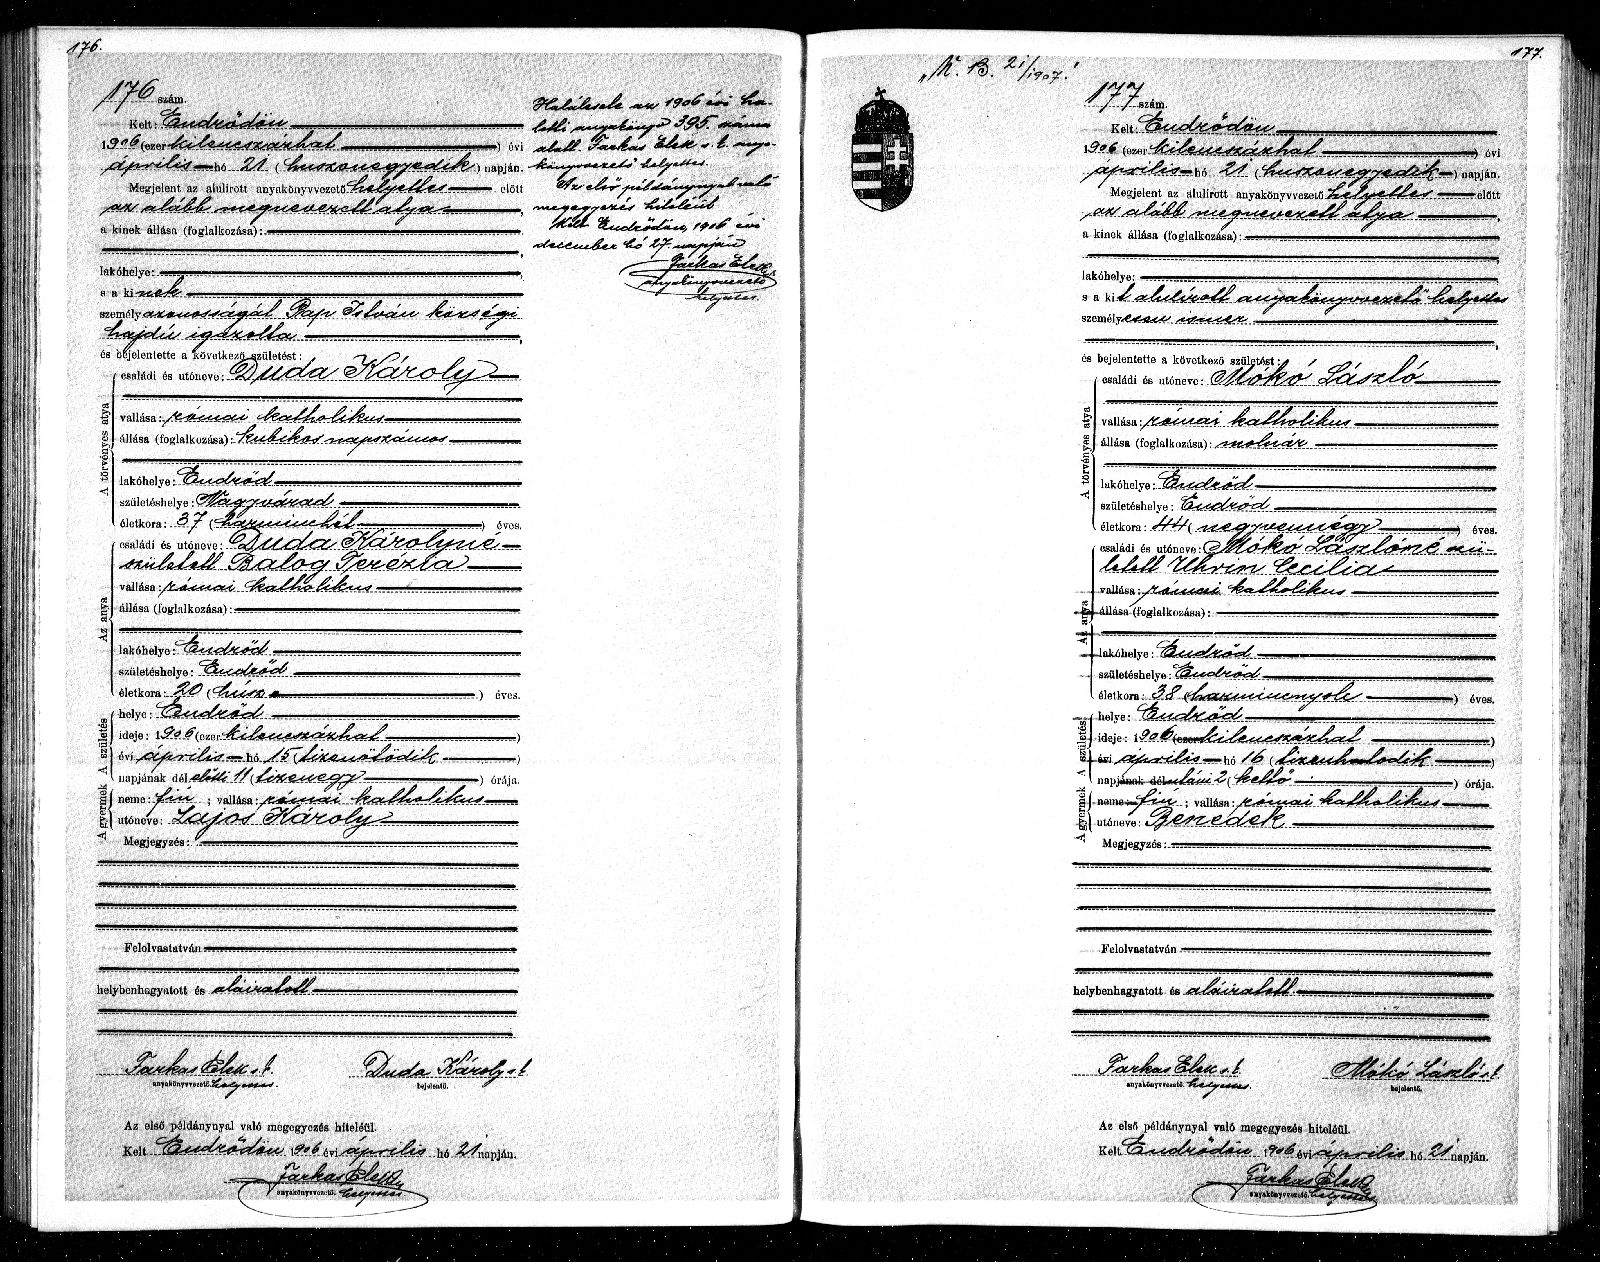 176.
176 szám.
Kelt: Endrődön
1906 (ezerkilenczszázhat) évi
április hó 21 (huszonegyedik) napján.
Megjelent az alulirott anyakönyvvezető helyettes előtt
az alább megnevezett atya,
a kinek állása (foglalkozása):
lakóhelye:
s a kinek
személyazonosságát Pap István községi
hajdú igazolta
és bejelentette a következő születést:
A törvényes atya
családi és utóneve: Duda Károly
vallása: római katholikus
állása (foglalkozása): kubikos napszámos
lakóhelye: Endrőd
születéshelye: Nagyvárad
életkora: 37 (harminchét) éves.
Az anya
családi és utóneve: Duda Károlyné
született Balog Terézia
vallása: római katholikus
állása (foglalkozása):
lakóhelye: Endrőd
születéshelye: Endrőd
életkora: 20 (húsz) éves.
A születés
helye: Endrőd
ideje: 1906 (ezerkilenczszázhat)
évi április hó 15 (tizenötödik)
napjának délelőtti 11 (tizenegy) órája.
A gyermek
neme: fiú; vallása: római katholikus
utóneve: Lajos Károly
Megjegyzés:
Felolvastatván
helybenhagyatott és aláiratott
Farkas Elek s. k. Duda Károly s. k.
anyakönyvvezető helyettes. bejelentő.
Az első példánynyal való megegyezés hiteléül.
Kelt Endrődön 1906 évi április hó 21 napján.
Farkas Elek
anyakönyvvezető helyettes
Halálesete az 1906 évi ha-
lotti anyakönyv 395. száma
alatt. Farkas Elek s. k. anya-
könyvvezető helyettes.
Az első példánynyal való
megegyezés hiteléül
Kelt Endrődön, 1906 évi
december hó 27. napján
Farkas Elek
anyakönyvvezető
helyettes.
177.
"K. B. 21/1907."
177 szám.
Kelt: Endrődön
1906 (ezerkilenczszázhat) évi
április hó 21 (huszonegyedik) napján.
Megjelent az alulirott anyakönyvvezető helyettes előtt
az alább megnevezett atya,
a kinek állása (foglalkozása):
lakóhelye:
s a kit alulírott anyakönyvvezető helyettes
személyesen ismer
és bejelentette a következő születést:
A törvényes atya
családi és utóneve: Mókó László
vallása: római katholikus
állása (foglalkozása): molnár
lakóhelye: Endrőd
születéshelye: Endrőd
életkora: 44 (negyvennégy) éves.
Az anya
családi és utóneve: Mókó Lászlóné szü-
letett Uhrin Cecilia
vallása: római katholikus
állása (foglalkozása):
lakóhelye: Endrőd
születéshelye: Endrőd
életkora: 38 (harmincnyolc) éves.
A születés
helye: Endrőd
ideje: 1906 (ezerkilenczszázhat)
évi április hó 16 (tizenhatodik)
napjának délutáni 2 (kettő) órája.
A gyermek
neme: fiú; vallása: római katholikus
utóneve: Benedek
Megjegyzés:
Felolvastatván
helybenhagyatott és aláiratott.
Farkas Elek s. k. Mókó László s. k.
anyakönyvvezető helyettes. bejelentő.
Az első példánynyal való megegyezés hiteléül.
Kelt Endrődön 1906 évi április hó 21 napján.
Farkas Elek
anyakönyvvezető helyettes